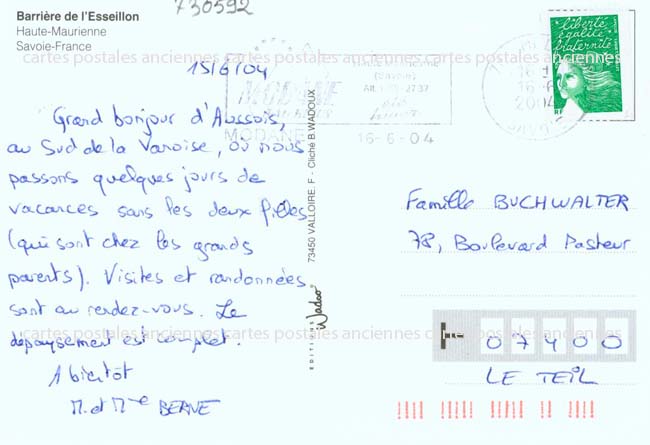 730592
Barrière de l'Esseillon
Haute-Maurienne
Savoie-France
cartes postales anciennes cartes postales anciennes cartes postales anciennes
15/6/04
Grand bonjour d'Aussois,
au Sud de la Vanoise, où nous
passons quelques jours de
vacances sans les deux filles
(qui sont chez les grands
parents). Visites et randonnées
sont au rendez-vous. Le
dépaysement est complet.
A bientôt
M. et Mme BERNE
MODANE
(Savoie)
MODANE 16-6-04
73450 VALLOIRE F - Cliché B.WADOUX
EDITIONS Wadoo
liberté
égalité
fraternité
RF
16-6
2004
Famille BUCHWALTER
78, Boulevard Pasteur
07400
LE TEIL
cartes postales anciennes cartes postales anciennes cartes postales anciennes